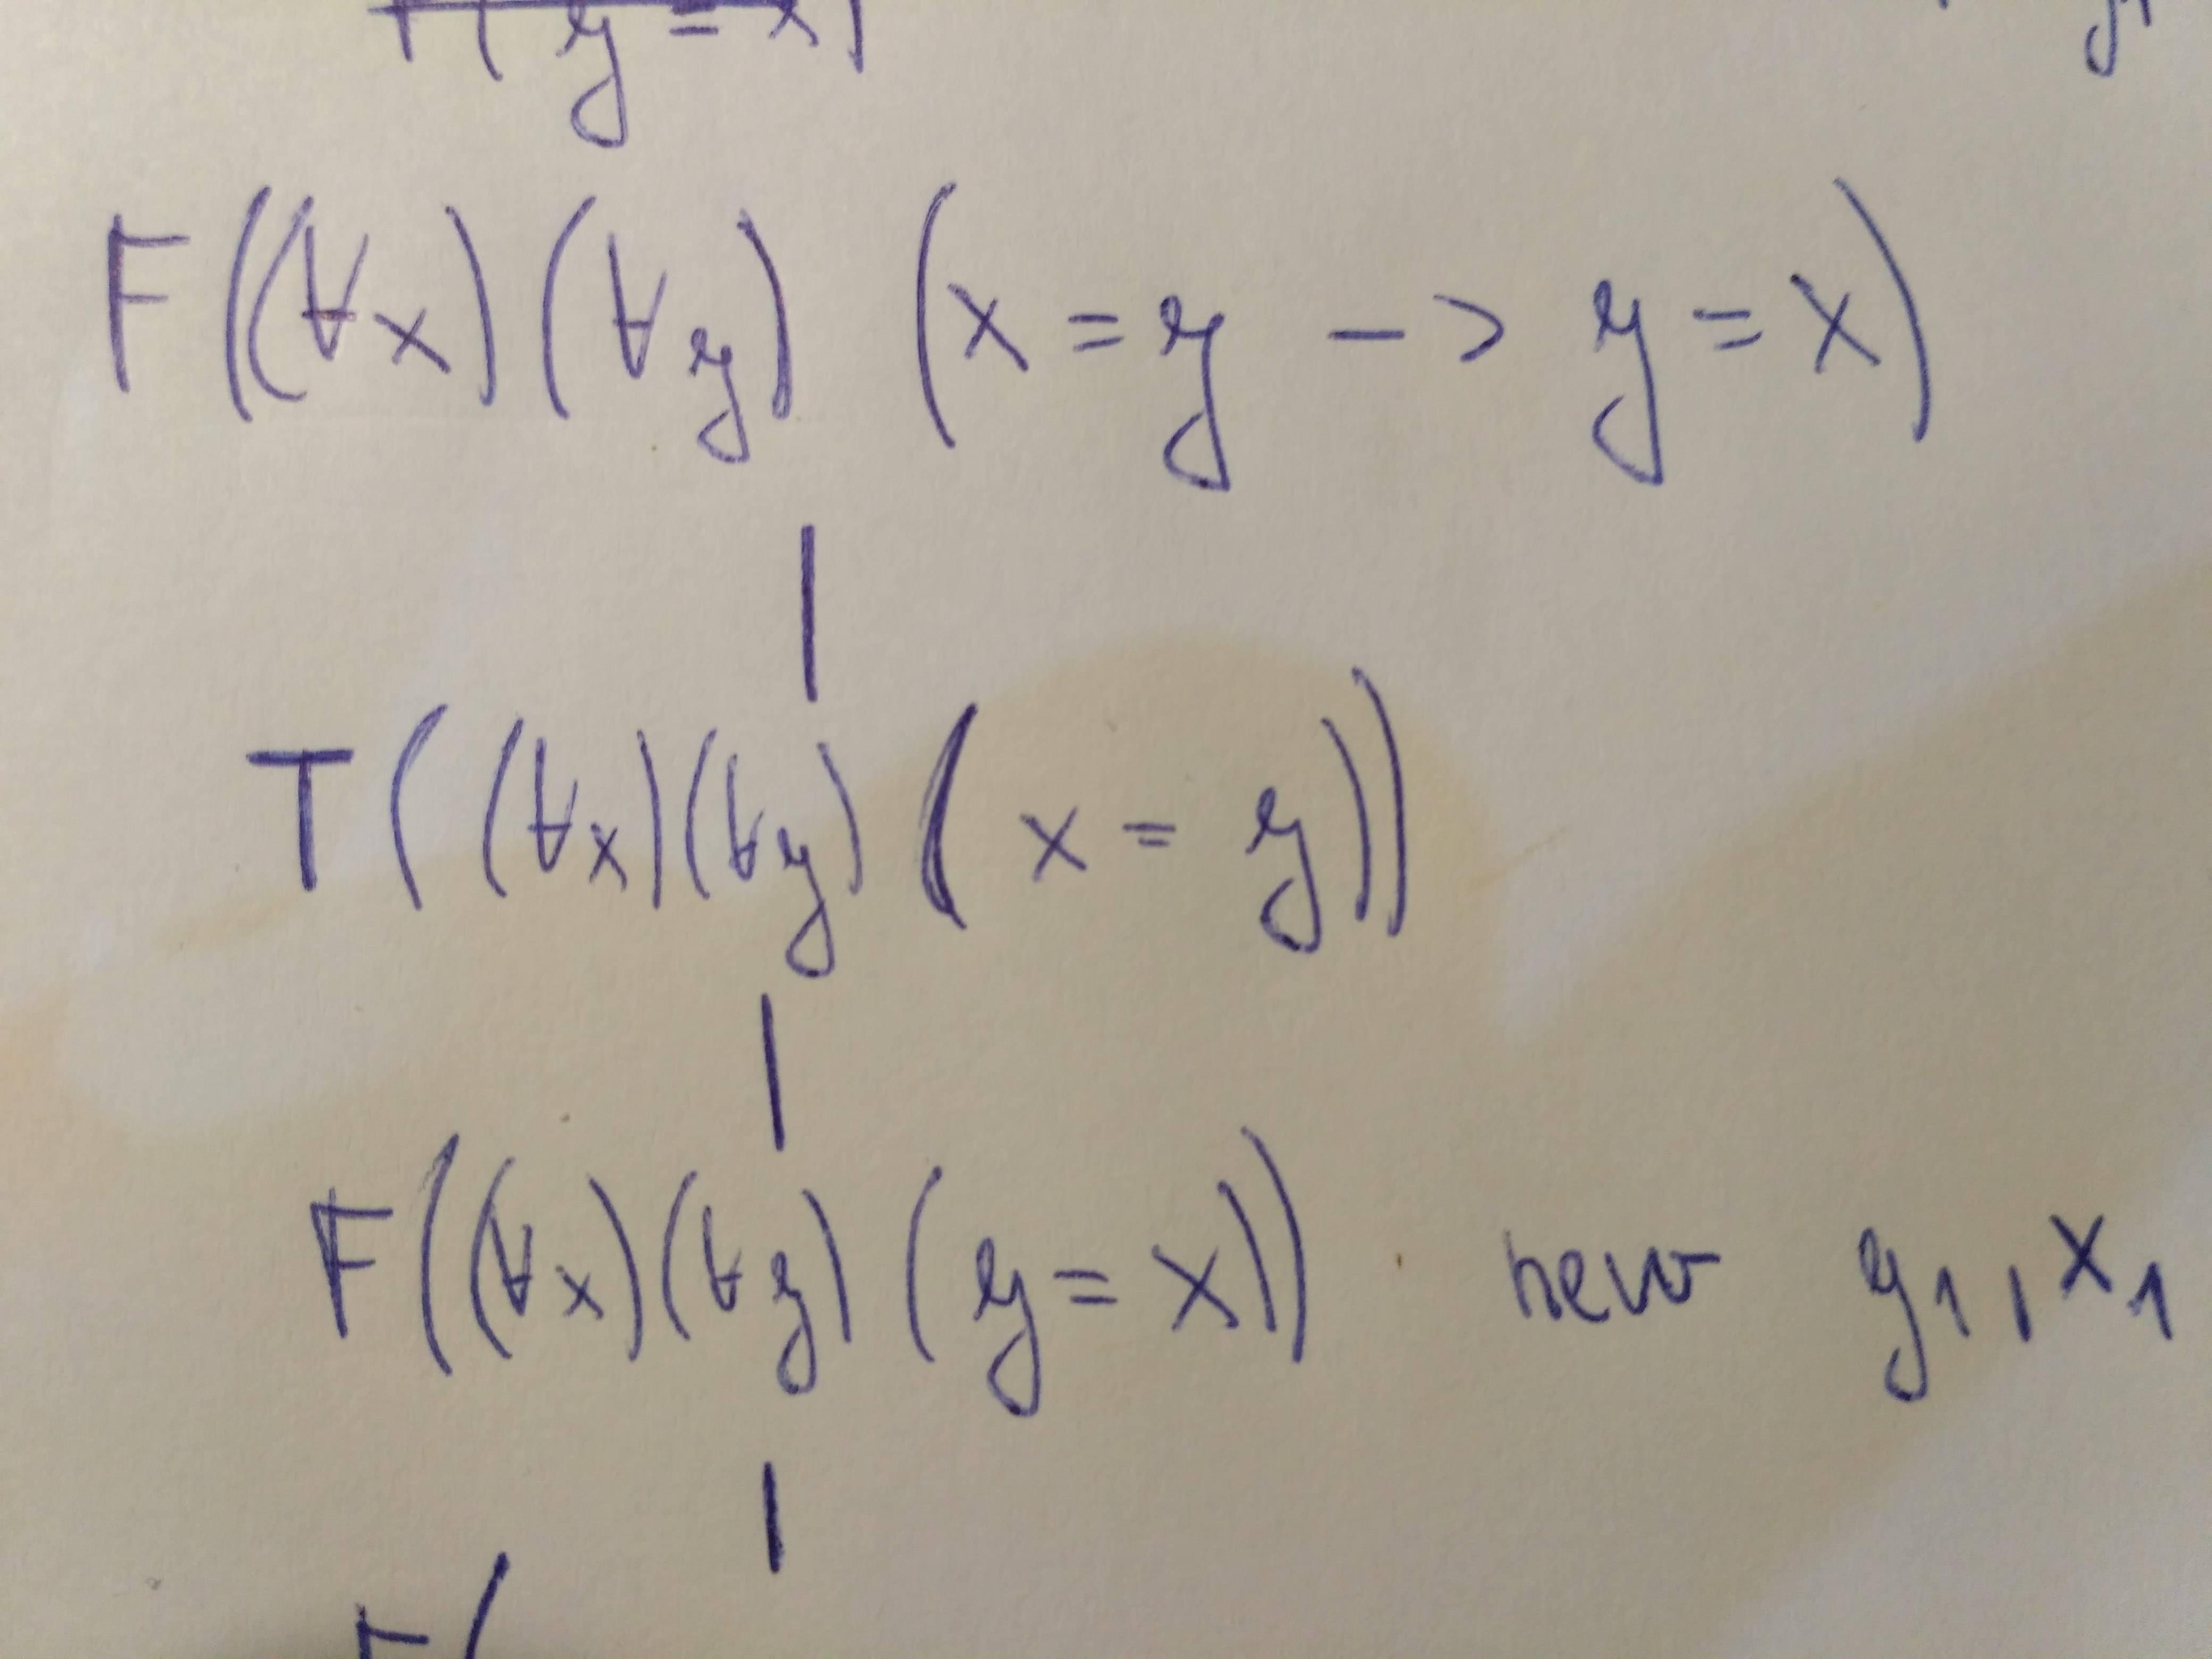 y = x
F((∀x)(∀y) (x = y -> y = x)
T((∀x)(∀y)(x = y))
F((∀x)(∀y)(y = x)) new y1, x1
F(